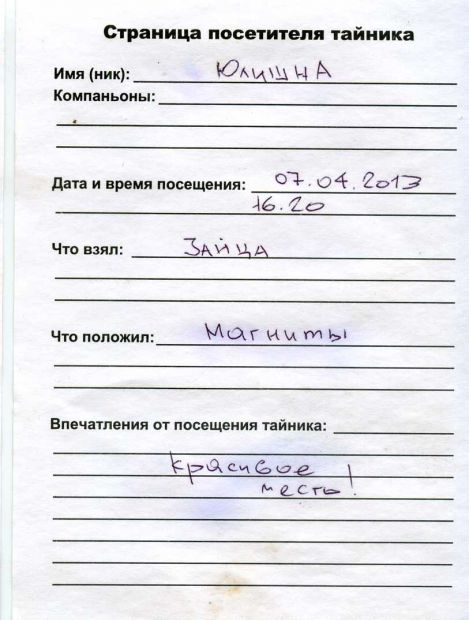 Страница посетителя тайника
Имя (ник): Юлишна
Компаньоны:
Дата и время посещения: 07.04.2013
16.20
Что взял: ЗАЙЦА
Что положил: Магниты
Впечатления от посещения тайника:
красивое
место!